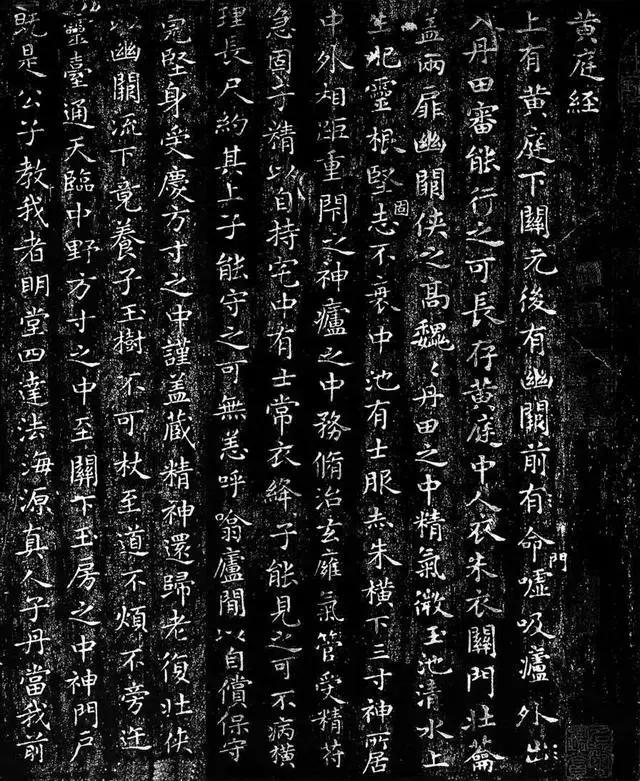 黄庭経
上有黄庭下關元後有幽闕前有命門噓吸廬外出
入丹田審能行之可長存黄庭中人衣朱衣關門壯蘥
盖兩扉幽闕侠之高魏〻丹田之中精氣微玉池清水上
生肥靈根堅固志不衰中池有士服赤朱横下三寸神所居
中外相距重閇之神廬之中務脩治玄廱氣管受精苻
急固子精以自持宅中有士常衣絳子能見之可不病横
理長尺約其上子能守之可無恙呼噏廬間以自償保守
完堅身受慶方寸之中謹盖藏精神還歸老復壯侠
以幽闕流下竟養子玉樹不可杖至道不煩不旁迕
靈臺通天臨中野方寸之中至關下玉房之中神門戶
既是公子教我者明堂四達法海源真人子丹當我前